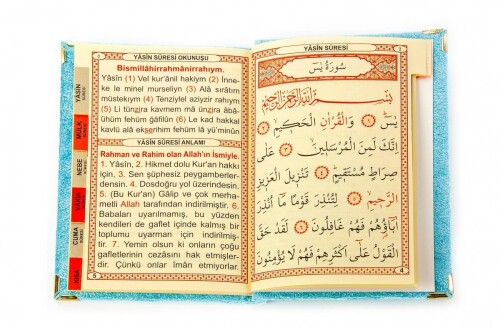 YÂSİN SÛRESİ OKUNUŞU
Bismillâhirrahmânirrahıym.
Yâsîn (1) Vel kur'ânil hakiym (2) İnne-
ke le minel murseliyn (3) Alâ sırâtım
müstekıym (4) Tenziylel aziyzir rahıym
(5) Li tünzira kavmem mâ ünzira âbâ-
ühüm fehüm ğâfilûn (6) Le kad hakkal
kavlü alâ ekserihim fehüm lâ yü'minûn
YÂSİN SÛRESİ ANLAMI
Rahman ve Rahim olan Allah'ın İsmiyle.
1. Yâsin, 2. Hikmet dolu Kur'an hakkı
için, 3. Sen şüphesiz peygamberler-
densin. 4. Dosdoğru yol üzerindesin.
5. (Bu Kur'an) Gâlip ve çok merha-
metli Allah tarafından indirilmiştir. 6.
Babaları uyarılmamış, bu yüzden
kendileri de gaflet içinde kalmış bir
toplumu uyarman için indirilmiştir.
tir. 7. Yemin olsun ki onların çoğu
gafletlerinin cezâsını hak etmişler-
dir. Çünkü onlar îman etmiyorlar.
5
YÂSİN
SÛRESİ
MÜLK
SÛRESİ
NEBE
SÛRESİ
VAKIA
SÛRESİ
CUMA
SÛRESİ
RISA
YÂSİN SÛRESİ
سُورَةُ يٰسٓ
بِسْمِ اللّٰهِ الرَّحْمٰنِ الرَّحِيمِ
يٰسٓ ﴿١﴾ وَالْقُرْاٰنِ الْحَكِيمِ ﴿٢﴾
اِنَّكَ لَمِنَ الْمُرْسَلِينَ ﴿٣﴾ عَلٰى
صِرَاطٍ مُسْتَقِيمٍ ﴿٤﴾ تَنْزِيلَ الْعَزِيزِ
الرَّحِيمِ ﴿٥﴾ لِتُنْذِرَ قَوْمًا مَٓا اُنْذِرَ
اٰبَٓاؤُهُمْ فَهُمْ غَافِلُونَ ﴿٦﴾ لَقَدْ حَقَّ
الْقَوْلُ عَلٰٓى اَكْثَرِهِمْ فَهُمْ لَا يُؤْمِنُونَ
4